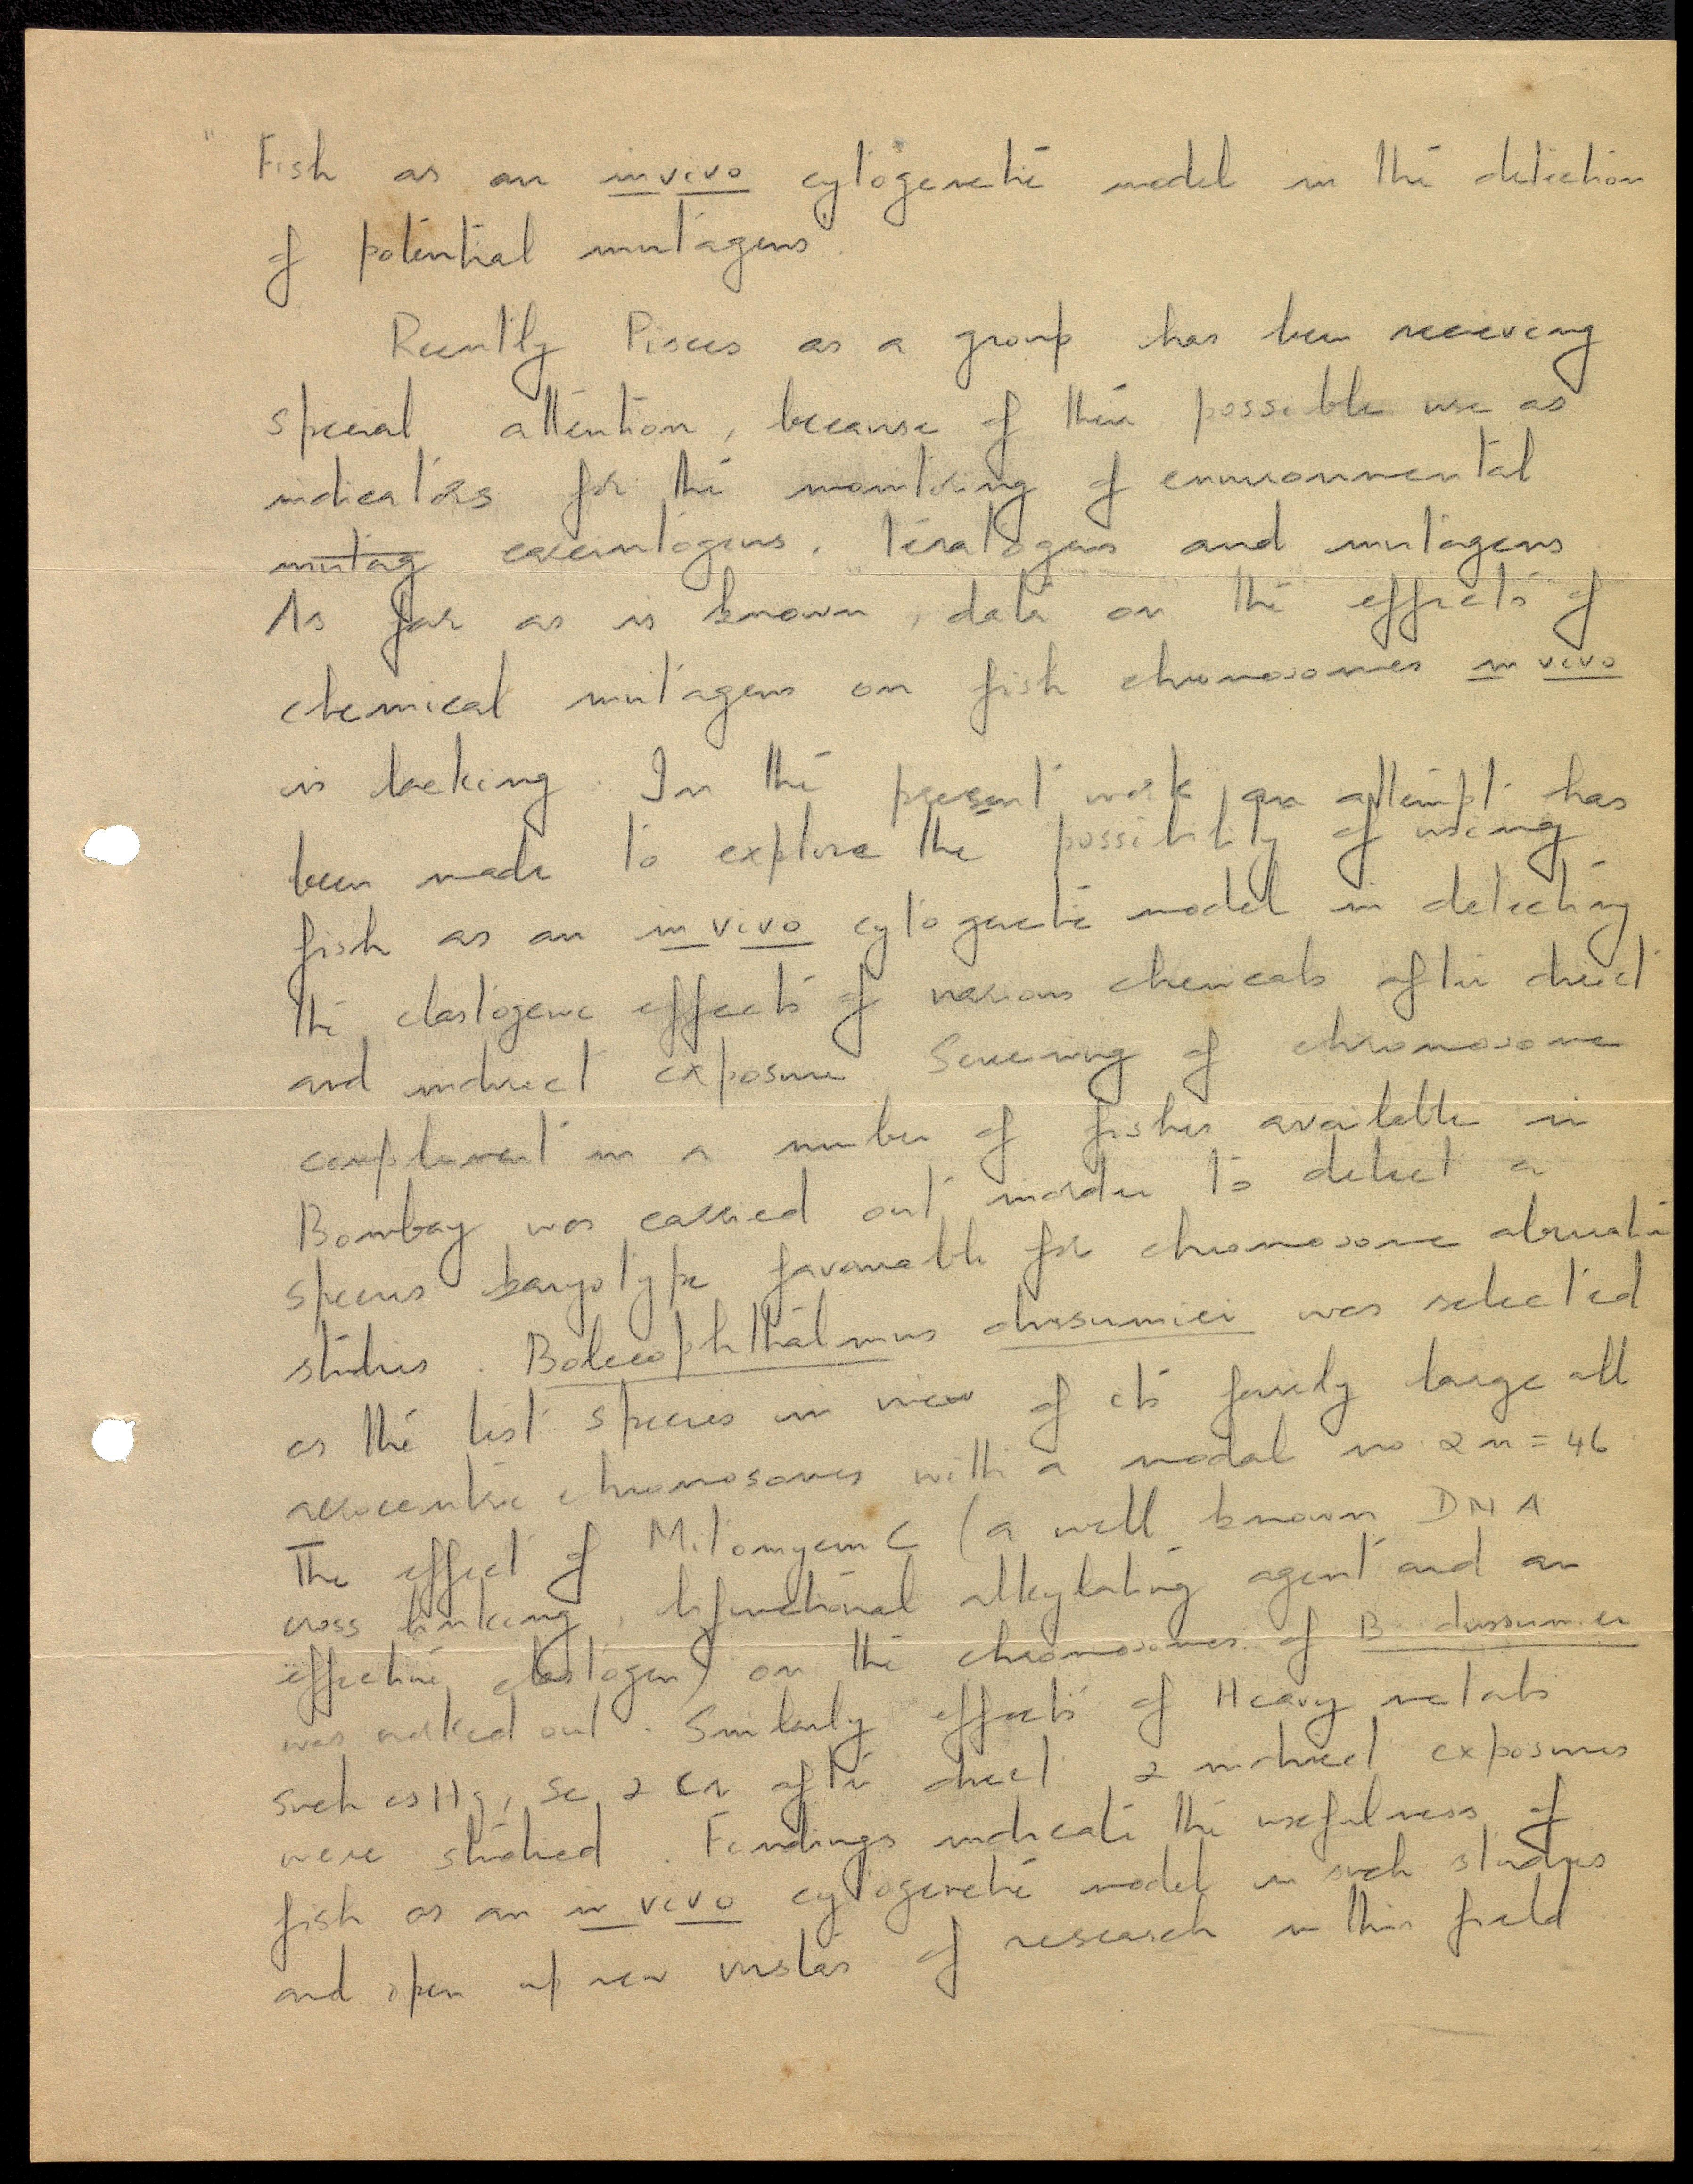 " Fish as an in vivo cytogenetic model in the detection
of potential mutagens.
Recently Pisces as a group has been receiving
special attention, because of their possible use as
indicators for the monitoring of environmental
mutag carcinogens, teratogens and mutagens
As far as is known, data on the effects of
chemical mutagens on fish chromosomes in vivo
is lacking. In the present work, an attempt has
been made to explore the possibility of using
fish as an in vivo cytogenetic model in detecting
the clastogenic effects of various chemicals after direct
and indirect exposure. Screening of chromosome
complement in a number of fishes available in
Bombay was carried out inorder to detect a
species karyotype favourable for chromosome aberration
studies. Boleeophthalmus dussumieri was selected
as the test species in view of its fairly large all
acrocentric chromosomes with a modal no. 2n = 46
The effect of Mitomycin C (a well known DNA
cross linking, bifunctional alkylating agent and an
effective clastogen) on the chromosomes of B. dussumieri
was worked out. Similarly effects of Heavy metals
such as Hg, Se & Cr after direct & indirect exposures
were studied. Findings indicate the usefulness of
fish as an in vivo cytogenetic model in such studies
and open up new vistas of research in this field